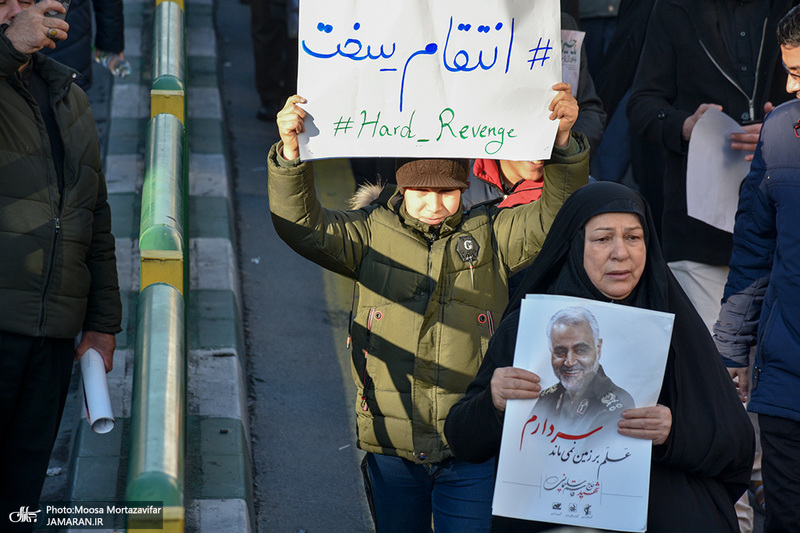 #انتقام سخت
#Hard_Revenge
G
سردارم
علم بر زمین نمی‌ماند
شهید
Photo:Moosa Mortazavifar
JAMARAN.IR